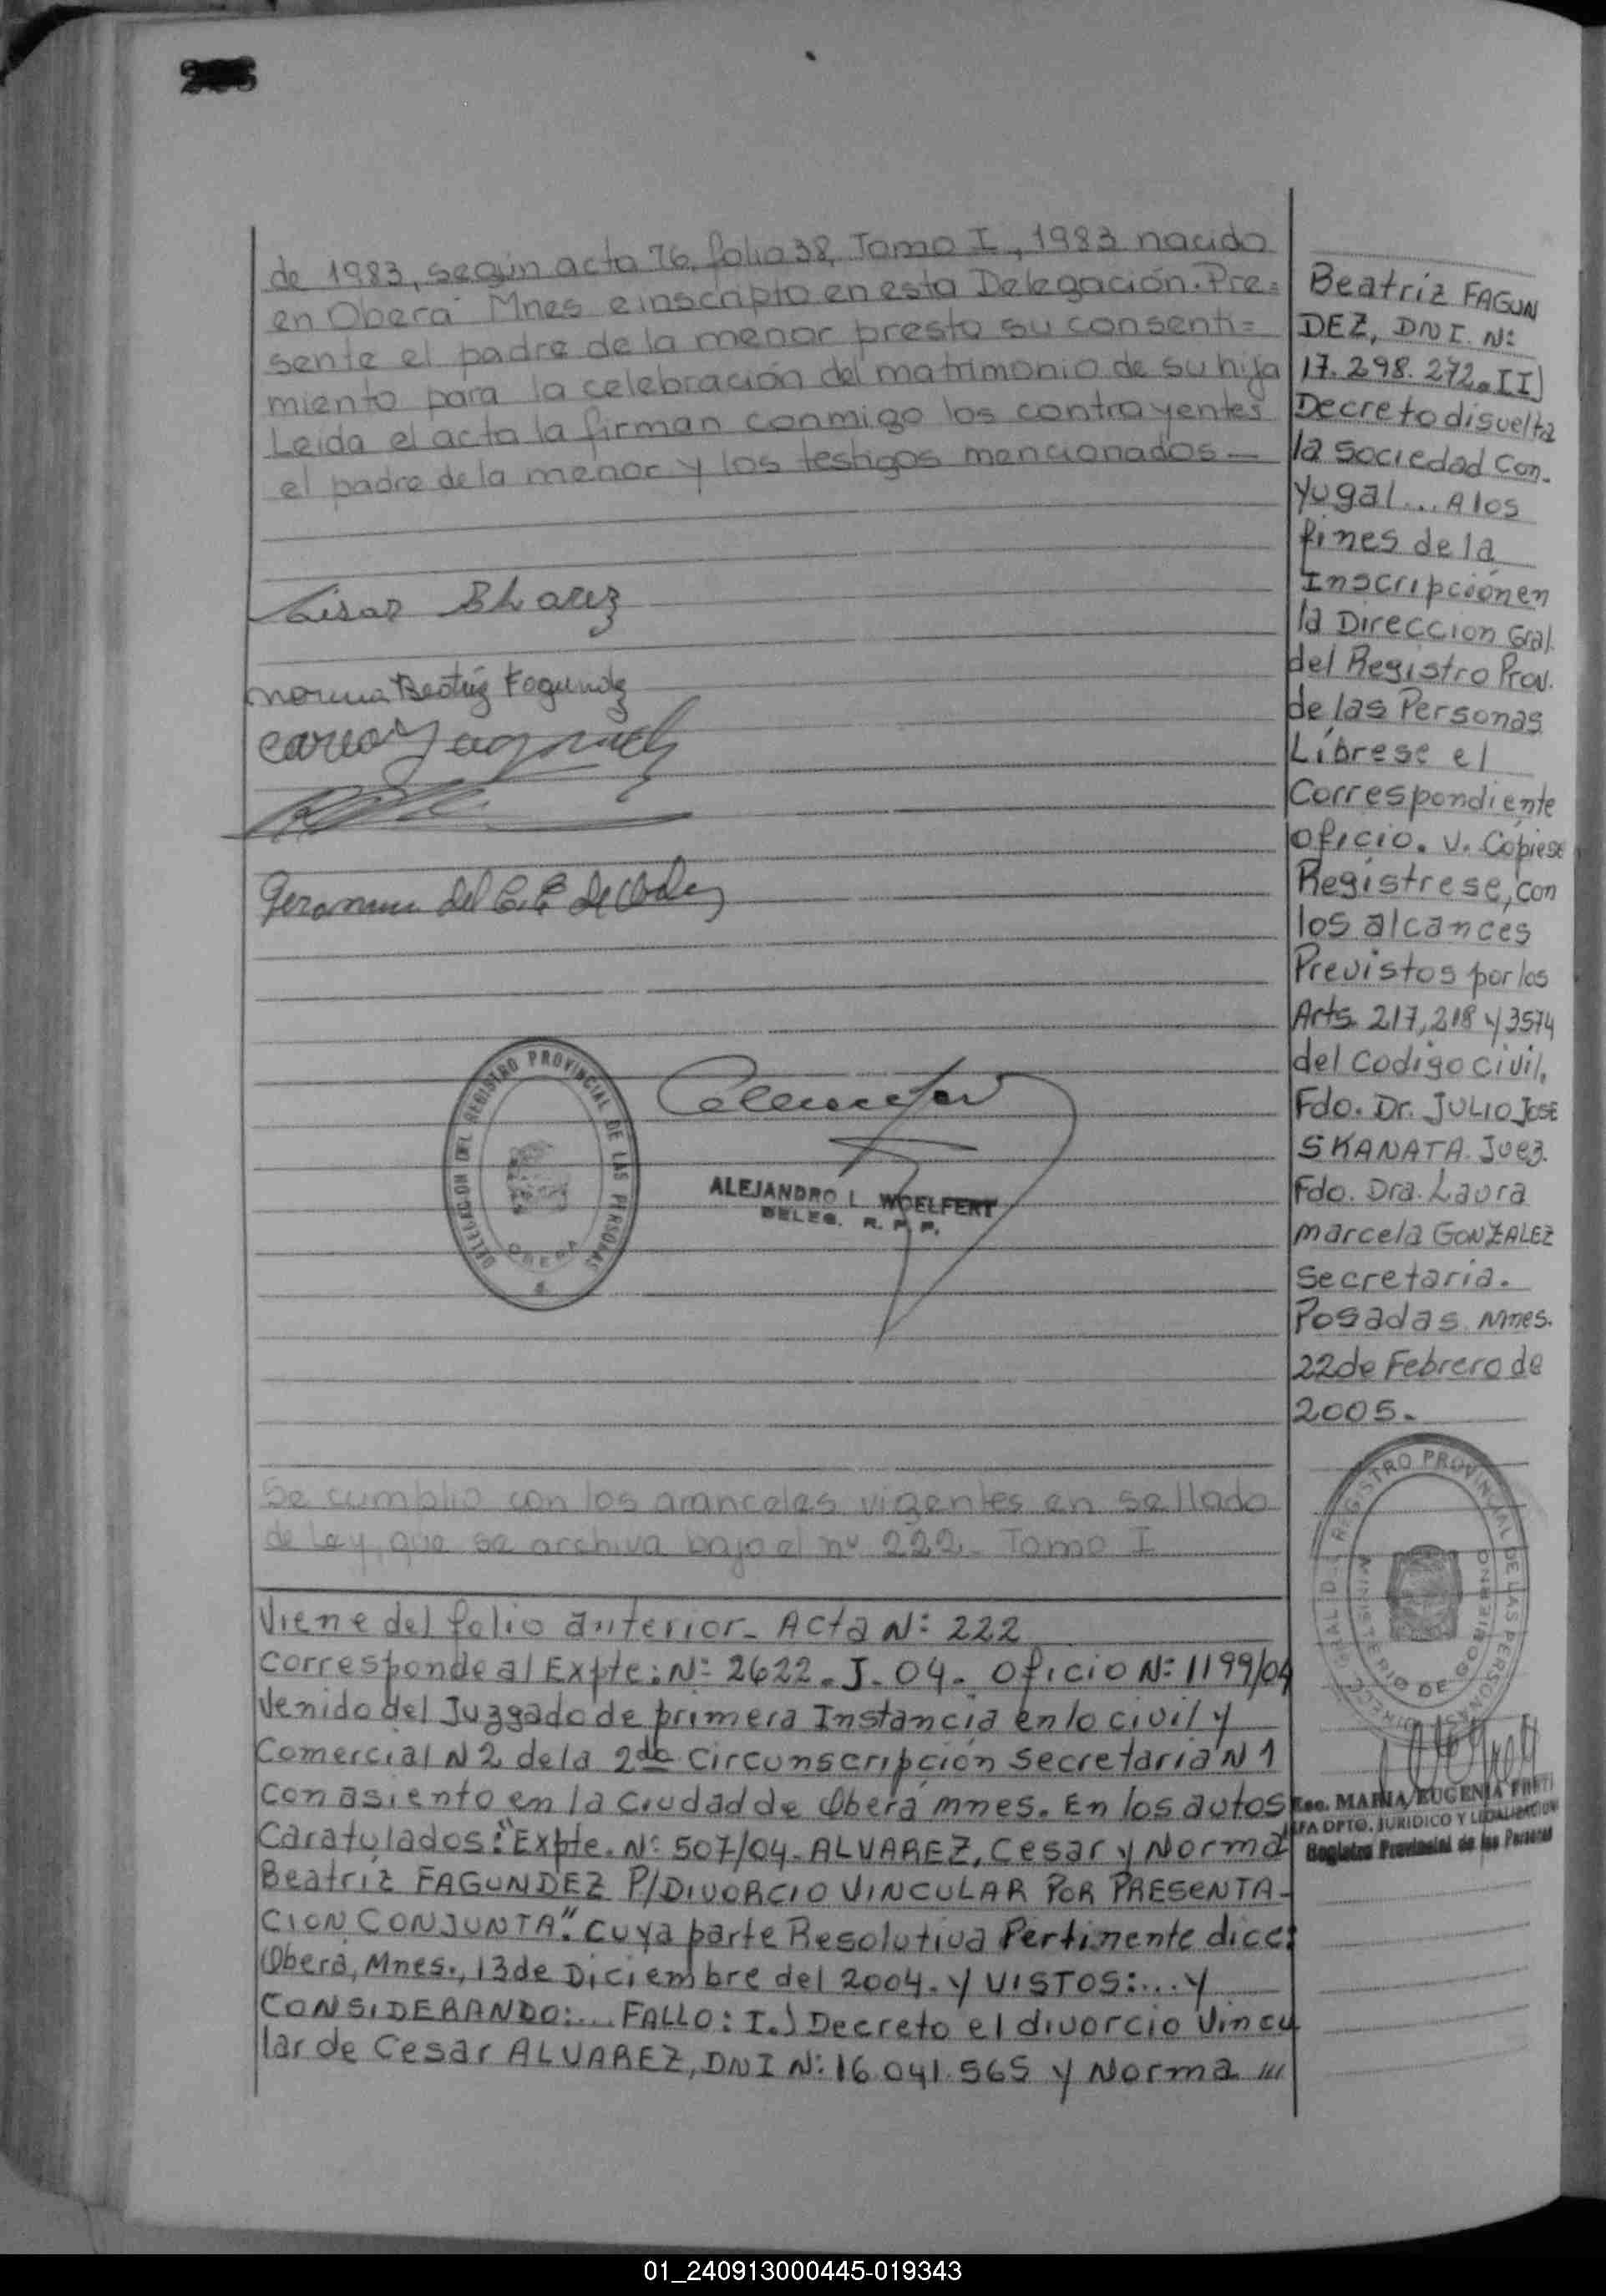 de 1983, según acta 76, folio 38, Tomo I, 1983 nacido
en Oberá Mnes e inscripto en esta Delegación. Pre=
sente el padre de la menor presto su consenti=
miento para la celebración del matrimonio de su hija
Leída el acta la firman conmigo los contrayentes
el padre de la menor y los testigos mencionados —
Cesar Alvarez
Norma Beatriz Fagundez
DELEGACION DEL REGISTRO PROVINCIAL DE LAS PERSONAS
OBERA
ALEJANDRO L. WOELFERT
DELEG. R. P. P.
Se cumplio con los aranceles vigentes en sellado
de Ley, que se archiva bajo el nº 222. Tomo I
Viene del folio anterior - Acta N: 222
Corresponde al Expte: N: 2622. J. 04. Oficio N: 1199/04
Venido del Juzgado de primera Instancia en lo civil y
Comercial N 2 de la 2da Circunscripción Secretaria N 1
Con asiento en la Ciudad de Oberá mnes. En los autos
Caratulados: "Expte. N: 507/04. ALVAREZ, Cesar y Norma
Beatriz FAGUNDEZ P/DIVORCIO VINCULAR POR PRESENTA-
CION CONJUNTA". Cuya parte Resolutiva Pertinente dice:
Oberá, Mnes., 13 de Diciembre del 2004. y VISTOS:... y
CONSIDERANDO:... FALLO: I.) Decreto el divorcio Vincu
lar de Cesar ALVAREZ, DNI N: 16.041.565 y Norma ///
Beatriz FAGUN
DEZ, DNI. N:
17.298.272. II)
Decreto disuelta
la Sociedad Con-
Yugal... A los
fines de la
Inscripción en
la Direccion Gral.
del Registro Prov.
de las Personas
Líbrese el
Correspondiente
oficio. V. Cópiese
Regístrese, con
los alcances
Previstos por los
Arts. 217, 218 y 3574
del Codigo Civil.
Fdo. Dr. JULIO JOSE
SKANATA. Juez.
Fdo. Dra. Laura
marcela GONZALEZ
Secretaria.
Posadas Mnes.
22 de Febrero de
2005.
DIRECC. GRAL. D. REGISTRO PROVINCIAL DE LAS PERSONAS
MINISTERIO DE GOBIERNO
Esc. MARIA EUGENIA
JEFA DPTO. JURIDICO Y LEGALIZACION
Registro Provincial de las Personas
01_240913000445-019343